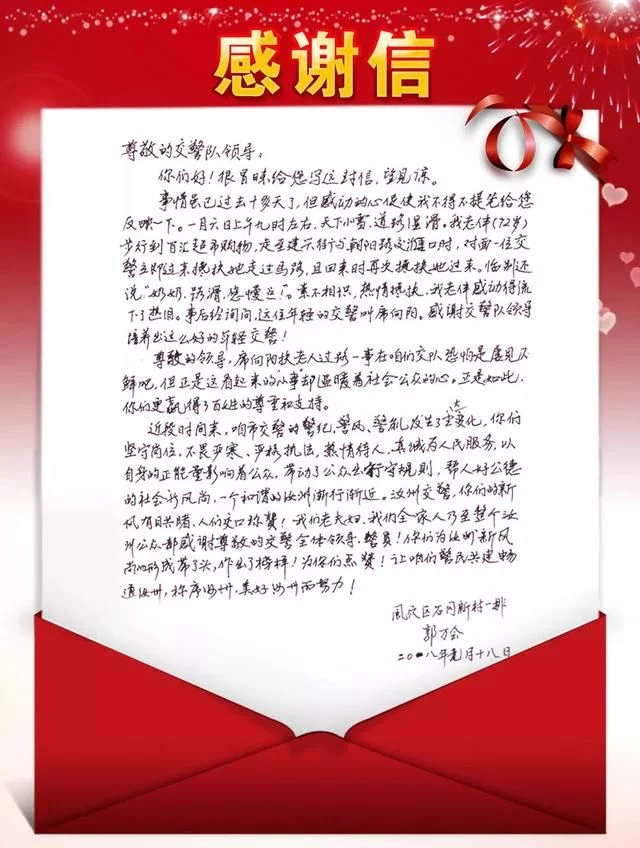 感谢信
尊敬的交警队领导：
你们好！很冒昧给您写这封信，望见谅。
事情虽已过去十多天了，但感动的心促使我不得不提笔给您
反映一下。一月六日上午九时左右，天下小雪，道路湿滑。我老伴(72岁)
步行到百汇超市购物，走至建兴街与朝阳路交汇口时，对面一位交
警立即过来搀扶她走过马路，且回来时再次搀扶她过来。临别还
说“奶奶，路滑，您慢走！”。素不相识，热情搀扶，我老伴感动得流
下了热泪。事后经询问，这位年轻的交警叫席向阳。感谢交警队领导
培养出这么好的年轻交警！
尊敬的领导，席向阳扶老人过路一事在咱们交队恐怕是屡见不
鲜吧，但正是这看起来的“小事”却温暖着社会公众的心。正是如此，
你们更赢得了百姓的尊重和支持。
近段时间来，咱市交警的警纪、警风、警貌发生了大变化，你们
坚守岗位，不畏严寒、严格执法，热情待人，真诚为人民服务，以
自身的正能量影响着公众，带动了公众出行守规则，帮人好公德
的社会新风尚，一个和谐的汝州渐行渐近。汝州交警，你们的新
风有目共睹，人们交口称赞！我们老夫妇、我们全家人乃至整个汝
州公众都感谢尊敬的交警全体领导、警员！你们为汝州新风
尚的形成带了头，作出了榜样！为你们点赞！让咱们警民共建畅
通汝州、称席汝州、美好汝州而努力！
风穴区石同新村一排
郭万会
二〇一八年元月十八日